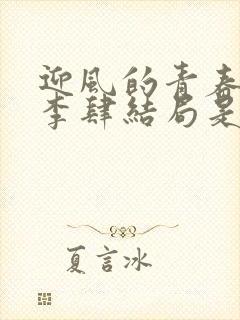 迎風的青春
李肆結局是
夏言冰